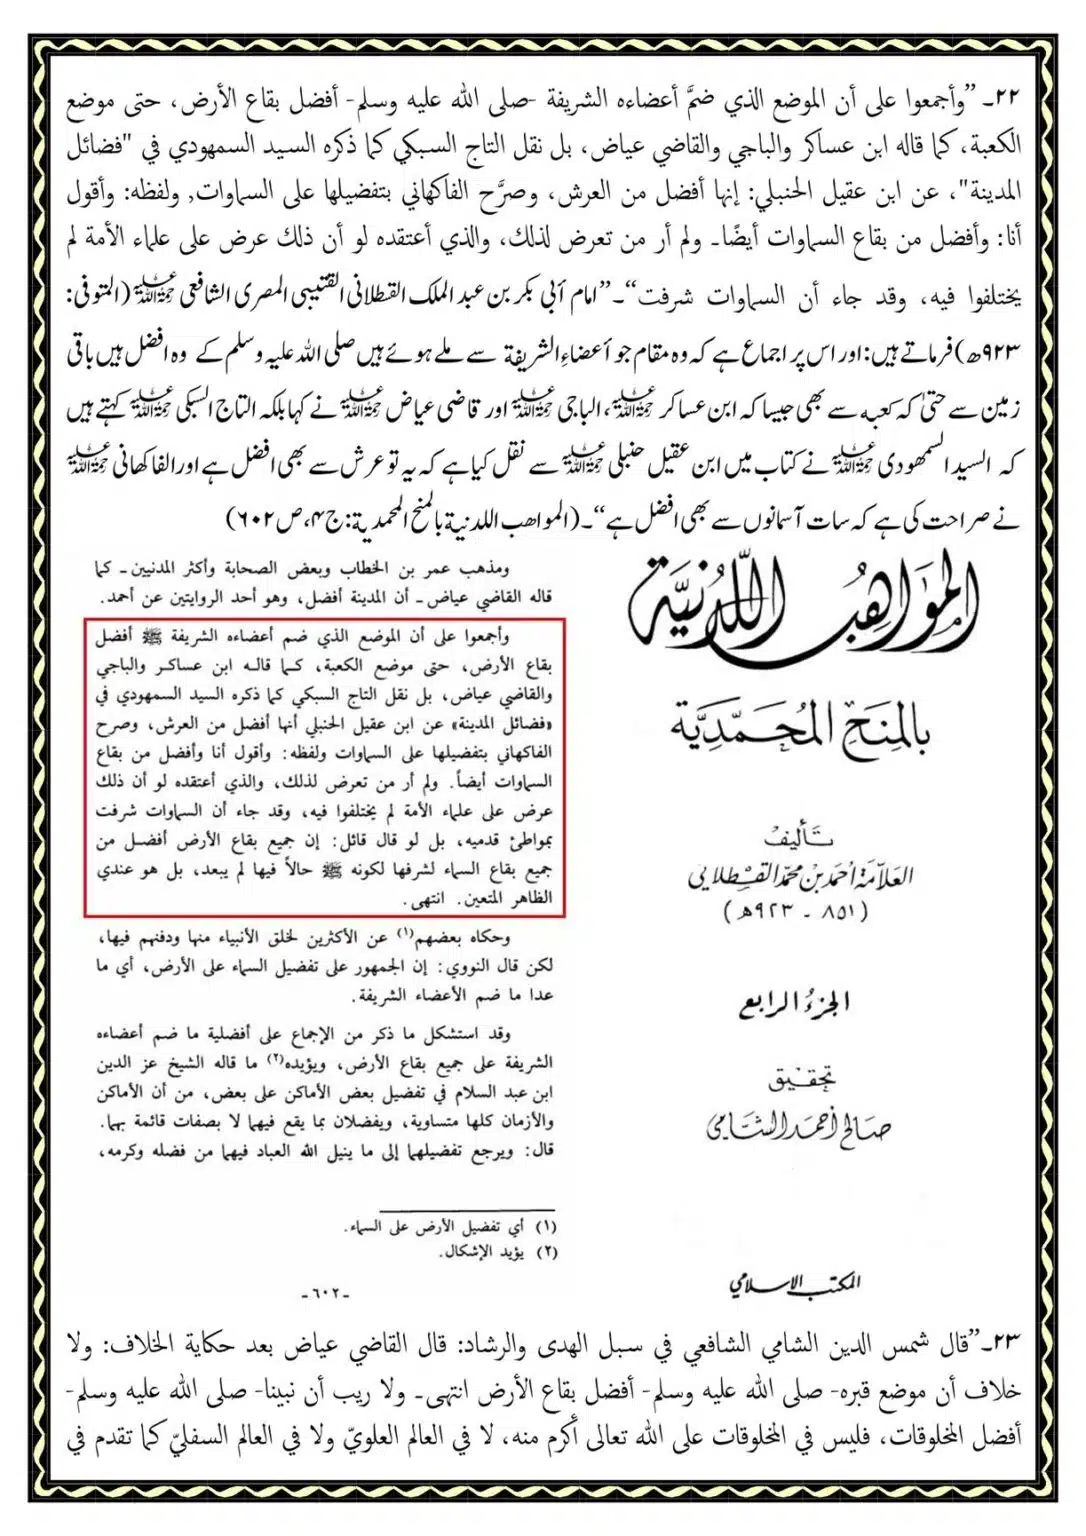 ۲۲۔ ”وأجمعوا على أن الموضع الذي ضمَّ أعضاءه الشريفة -صلى الله عليه وسلم- أفضل بقاع الأرض، حتى موضع
الكعبة، كما قاله ابن عساكر والباجي والقاضي عياض، بل نقل التاج السبكي كما ذكره السيد السمهودي في "فضائل
المدينة"، عن ابن عقيل الحنبلي: إنها أفضل من العرش، وصرَّح الفاكهاني بتفضيلها على السماوات, ولفظه: وأقول
أنا: وأفضل من بقاع السماوات أيضًا۔ ولم أر من تعرض لذلك، والذي أعتقده لو أن ذلك عرض على علماء الأمة لم
يختلفوا فيه، وقد جاء أن السماوات شرفت“۔ ”امام أبي بكر بن عبد الملك القسطلانی القتیبی المصری الشافعی رحمۃ اللہ علیہ (المتوفی:
۹۲۳ھ) فرماتے ہیں: اور اس پر اجماع ہے کہ وہ مقام جو أعضاء الشريفة سے ملے ہوئے ہیں صلی اللہ علیہ وسلم کے وہ افضل ہیں باقی
زمین سے حتیٰ کہ کعبہ سے بھی جیسا کہ ابن عساکر رحمۃ اللہ علیہ، الباجی رحمۃ اللہ علیہ اور قاضی عیاض رحمۃ اللہ علیہ نے کہا بلکہ التاج السبکی رحمۃ اللہ علیہ کہتے ہیں
کہ السید السمھودی رحمۃ اللہ علیہ نے کتاب میں ابن عقیل حنبلی رحمۃ اللہ علیہ سے نقل کیا ہے کہ یہ تو عرش سے بھی افضل ہے اور الفاکھانی رحمۃ اللہ علیہ
نے صراحت کی ہے کہ سات آسمانوں سے بھی افضل ہے“۔ (المواهب اللدنية بالمنح المحمدية: ج۴، ص۶۰۲)
المواهب اللدنية
بالمنح المحمدية
تأليف
العلامة أحمد بن محمد القسطلاني
(٨٥١ - ٩٢٣هـ)
الجزء الرابع
تحقيق
صالح أحمد الشامي
المكتب الإسلامي
ومذهب عمر بن الخطاب وبعض الصحابة وأكثر المدنيين ـ كما
قاله القاضي عياض ـ أن المدينة أفضل، وهو أحد الروايتين عن أحمد.
وأجمعوا على أن الموضع الذي ضم أعضاءه الشريفة ﷺ أفضل
بقاع الأرض، حتى موضع الكعبة، كما قاله ابن عساكر والباجي
والقاضي عياض، بل نقل التاج السبكي كما ذكره السيد السمهودي في
«فضائل المدينة» عن ابن عقيل الحنبلي أنها أفضل من العرش، وصرح
الفاكهاني بتفضيلها على السماوات ولفظه: وأقول أنا وأفضل من بقاع
السماوات أيضاً. ولم أر من تعرض لذلك، والذي أعتقده لو أن ذلك
عرض على علماء الأمة لم يختلفوا فيه، وقد جاء أن السماوات شرفت
بمواطئ قدميه، بل لو قال قائل: إن جميع بقاع الأرض أفضل من
جميع بقاع السماء لشرفها لكونه ﷺ حالاً فيها لم يبعد، بل هو عندي
الظاهر المتعين. انتهى.
وحكاه بعضهم(١) عن الأكثرين لخلق الأنبياء منها ودفنهم فيها،
لكن قال النووي: إن الجمهور على تفضيل السماء على الأرض، أي ما
عدا ما ضم الأعضاء الشريفة.
وقد استشكل ما ذكر من الإجماع على أفضلية ما ضم أعضاءه
الشريفة على جميع بقاع الأرض، ويؤيده(٢) ما قاله الشيخ عز الدين
ابن عبد السلام في تفضيل بعض الأماكن على بعض، من أن الأماكن
والأزمان كلها متساوية، ويفضلان بما يقع فيهما لا بصفات قائمة بهما.
قال: ويرجع تفضيلهما إلى ما ينيل الله العباد فيهما من فضله وكرمه،
(١) أي تفضيل الأرض على السماء.
(٢) يؤيد الإشكال.
-٦٠٢-
۲۳۔ ”قال شمس الدين الشامي الشافعي في سبل الهدى والرشاد: قال القاضي عياض بعد حكاية الخلاف: ولا
خلاف أن موضع قبره- صلى الله عليه وسلم- أفضل بقاع الأرض انتهى۔ ولا ريب أن نبينا- صلى الله عليه وسلم-
أفضل المخلوقات، فليس في المخلوقات على الله تعالى أكرم منه، لا في العالم العلويّ ولا في العالم السفليّ كما تقدم في